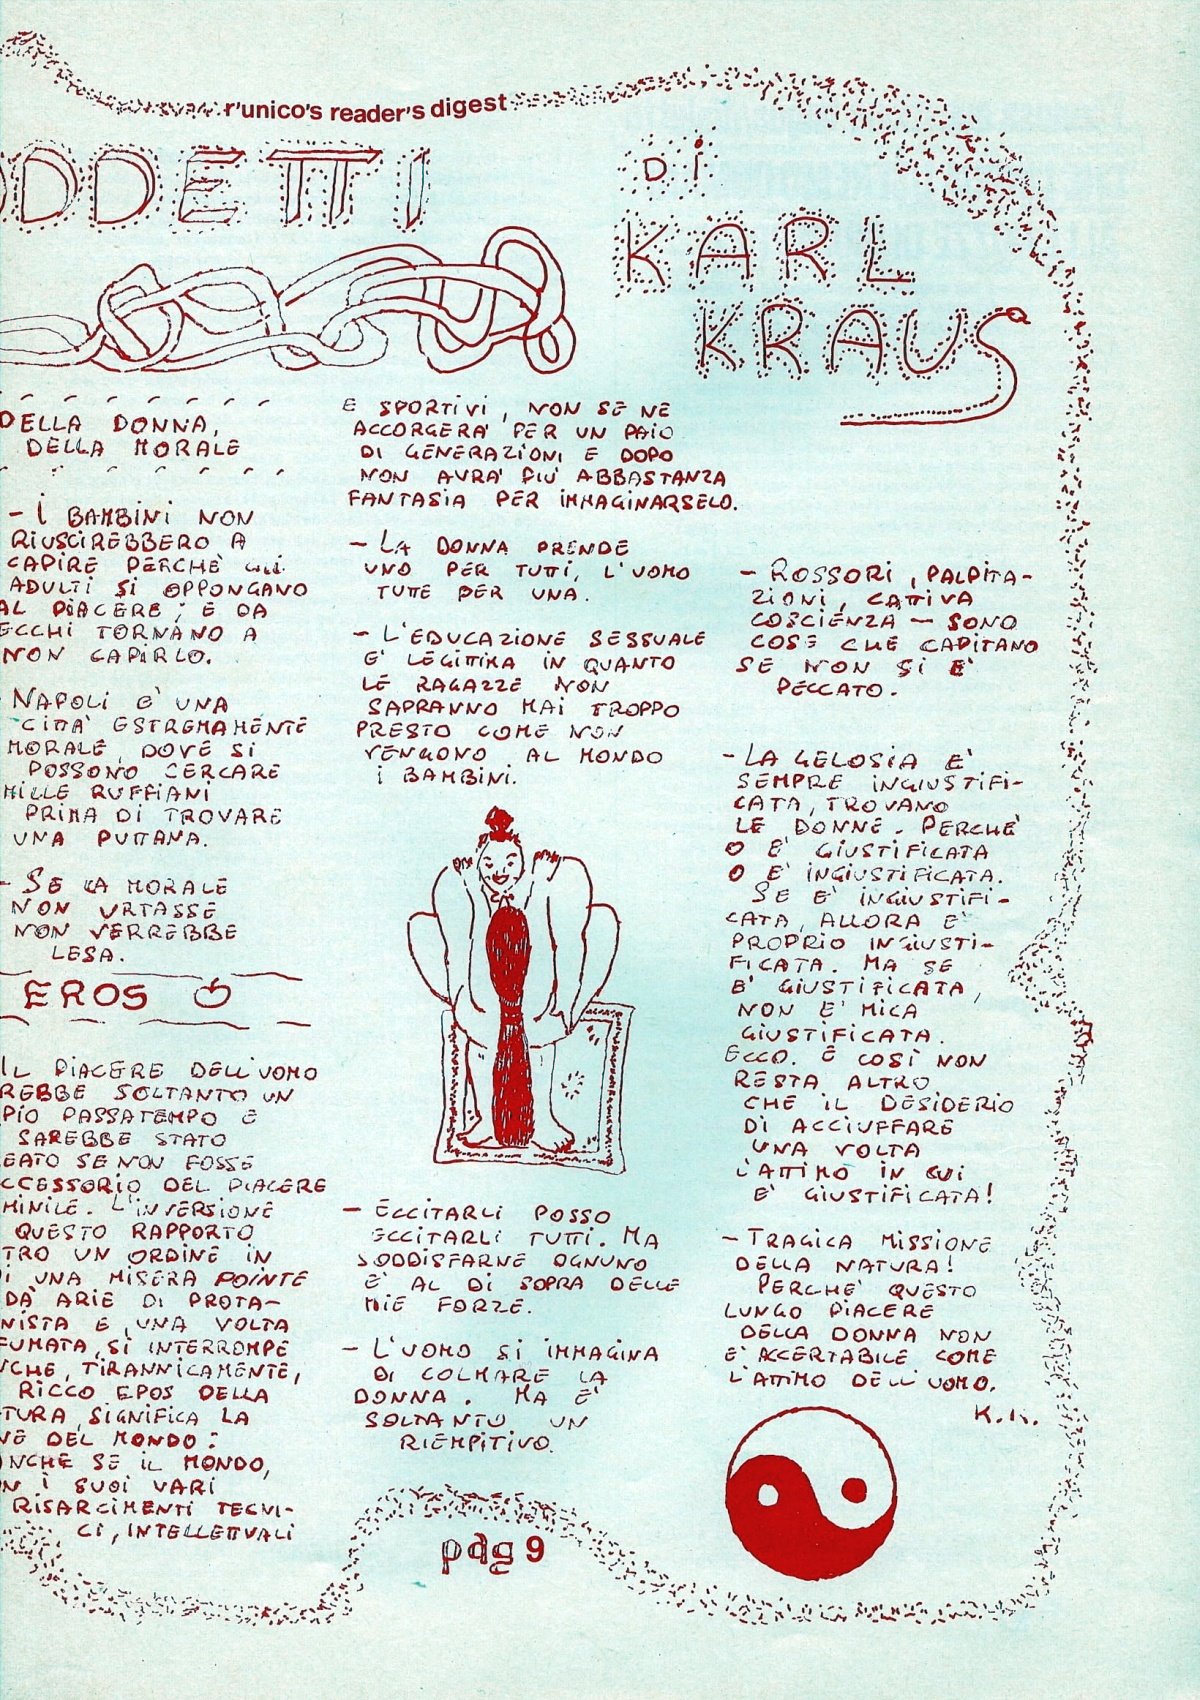 r'unico's reader's digest
DDETTI
Di
KARL
KRAUS
DELLA DONNA,
DELLA MORALE
- I BAMBINI NON
RIUSCIREBBERO A
CAPIRE PERCHÈ GLI
ADULTI SI OPPONGANO
AL PIACERE; E DA
ECCHI TORNANO A
NON CAPIRLO.
NAPOLI E' UNA
CITTA' ESTREMAMENTE
MORALE, DOVE SI
POSSONO CERCARE
MILLE RUFFIANI
PRIMA DI TROVARE
UNA PUTTANA.
- SE LA MORALE
NON URTASSE
NON VERREBBE
LESA.
EROS
IL PIACERE DELL'UOMO
REBBE SOLTANTO UN
PIO PASSATEMPO E
SAREBBE STATO
EATO SE NON FOSSE
CCESSORIO DEL PIACERE
MINILE. L'INVERSIONE
QUESTO RAPPORTO
TRO UN ORDINE IN
DI UNA MISERA POINTE
DÀ ARIE DI PROTA-
NISTA E, UNA VOLTA
FUMATA, SI INTERROMPE
NCHE, TIRANNICAMENTE,
RICCO EPOS DELLA
TURA, SIGNIFICA LA
NE DEL MONDO:
ANCHE SE IL MONDO,
N I SUOI VARI
RISARCIMENTI TECNI-
CI, INTELLETTUALI
E SPORTIVI, NON SE NE
ACCORGERA' PER UN PAIO
DI GENERAZIONI E DOPO
NON AVRA' PIU' ABBASTANZA
FANTASIA PER IMMAGINARSELO.
- LA DONNA PRENDE
UNO PER TUTTI, L'UOMO
TUTTE PER UNA.
- L'EDUCAZIONE SESSUALE
E' LEGITTIMA IN QUANTO
LE RAGAZZE NON
SAPRANNO MAI TROPPO
PRESTO COME NON
VENGONO AL MONDO
I BAMBINI.
- ECCITARLI POSSO
ECCITARLI TUTTI. MA
SODDISFARNE OGNUNO
E' AL DI SOPRA DELLE
MIE FORZE.
- L'UOMO SI IMMAGINA
DI COLMARE LA
DONNA. MA E'
SOLTANTO UN
RIEMPITIVO.
- ROSSORI, PALPITA-
ZIONI, CATTIVA
COSCIENZA - SONO
COSE CHE CAPITANO
SE NON SI E'
PECCATO.
- LA GELOSIA E'
SEMPRE INGIUSTIFI-
CATA, TROVANO
LE DONNE. PERCHE'
O E' GIUSTIFICATA
O E' INGIUSTIFICATA.
SE E' INGIUSTIFI-
CATA, ALLORA E'
PROPRIO INGIUSTI-
FICATA. MA SE
E' GIUSTIFICATA,
NON E' MICA
GIUSTIFICATA.
ECCO. E COSÌ NON
RESTA ALTRO
CHE IL DESIDERIO
DI ACCIUFFARE
UNA VOLTA
L'ATTIMO IN CUI
E' GIUSTIFICATA!
- TRAGICA MISSIONE
DELLA NATURA!
PERCHE' QUESTO
LUNGO PIACERE
DELLA DONNA NON
E' ACCERTABILE COME
L'ATTIMO DELL'UOMO.
K.K.
pag 9